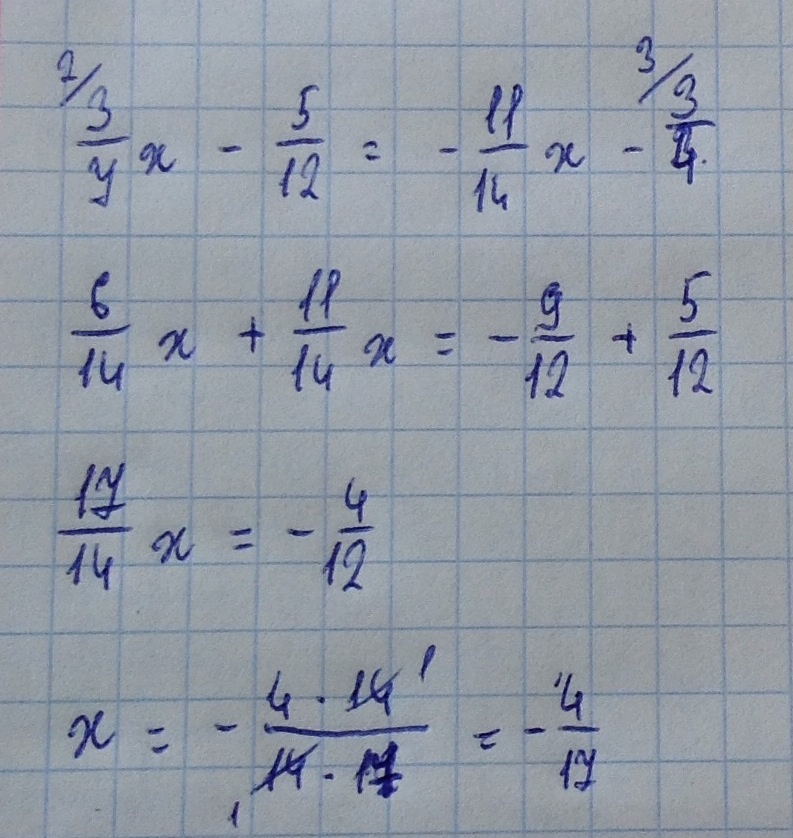 2/ 3/7 x - 5/12 = - 11/14 x - 3/ 3/4
6/14 x + 11/14 x = - 9/12 + 5/12
17/14 x = - 4/12
x = - 4 · 14 1 / 1 14 · 17 = - 4/17